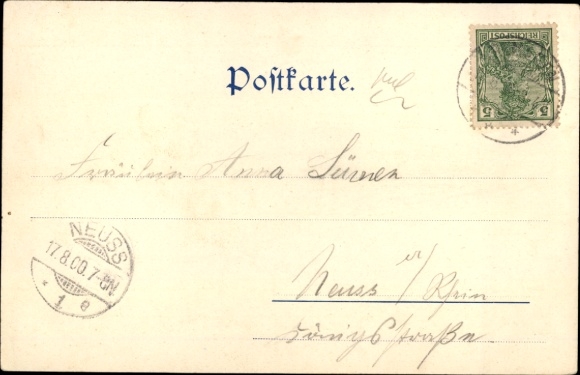 Postkarte.
5 REICHSPOST 5
Fräulein Anna
NEUSS
17.8.00.7-8N.
* 1 e
Neuss a/ Rhein
Königsstraße.